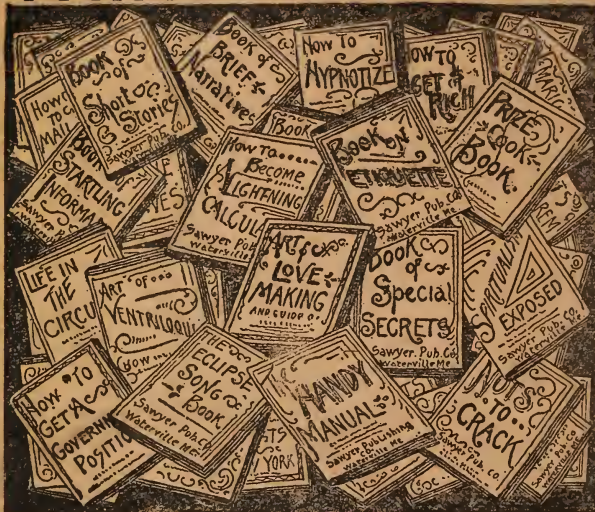 BOOK
of
Short
Stories
Sawyer Pub. Co.
Book of
BRIEF
Narratives
HOW TO
HYPNOTIZE
HOW TO
GET
RICH
PRIZE
Cook
Book
HOW
TO
MAIL
BOOK
STARTLING
INFORMA
Sawyer
BOOK
HOW TO
Become
LIGHTENING
CALCULA
Sawyer Pub
Waterville
Book
ETIQUETTE
Sawyer Pub. Co.
Waterville Me.
LIFE IN
THE
CIRCU
ART OF
VENTRILOQUI
HOW
ART
LOVE
MAKING
AND GUIDE
BOOK
of
Special
SECRETS
Sawyer. Pub. Co.
Waterville Me
EXPOSED
Sawyer Pub. Co.
Waterville
HOW TO
GET A
GOVERNM
POSITIO
THE
ECLIPSE
SONG
BOOK
Sawyer Pub. Co.
Waterville ME.
HANDY
MANUAL
Sawyer Publishing
Waterville ME
NUTS
TO
CRACK
Sawyer Pub. Co.
YORK